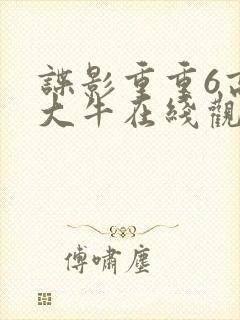 諜影重重6高
大牛在綫觀
傅嘯塵